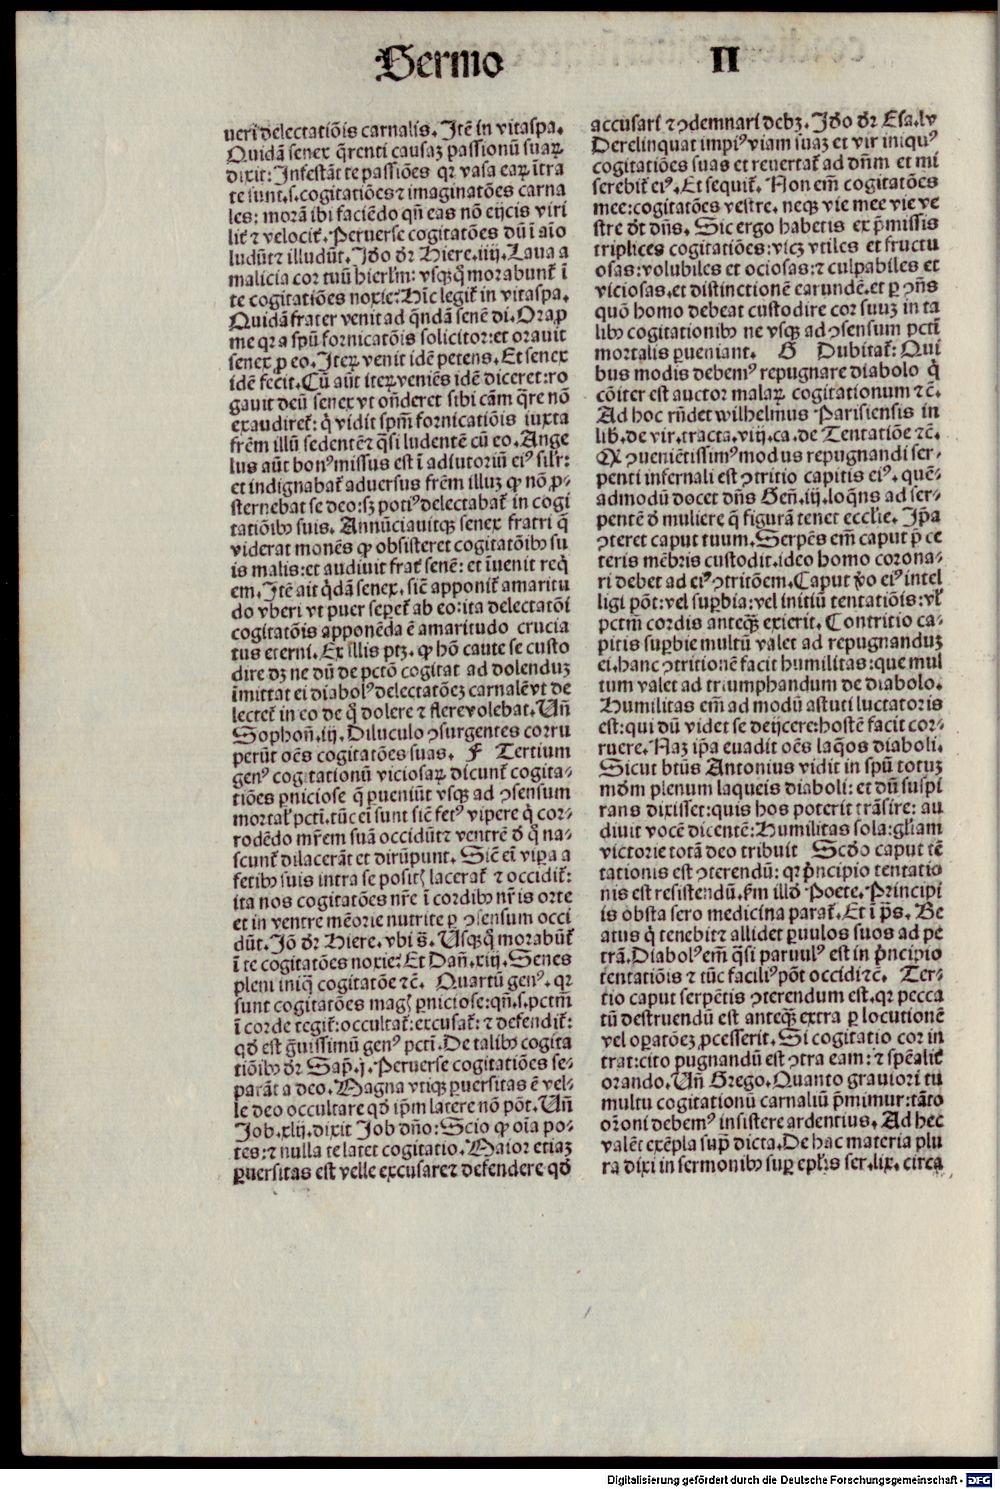 Sermo II
ueri delectatiõis carnalis. Itẽ in vitaspa.
Quidã senex q̃renti causaꝫ passionũ suaꝝ
dixit: Infestãt te passiões qꝛ vasa eaꝝ ĩtra
te sunt.s.cogitatiões ⁊ imaginatões carna
les: morã ibi faciẽdo qñ eas nõ eijcis viri
lit̃ ⁊ velocit̃. Peruerse cogitatões dũ ĩ aĩo
ludũt ⁊ illudũt. Iđo đr Hiere.iiij. Laua a
malicia cor tuũ hierl̃m: vsq̃q̃ morabunt̃ ĩ
te cogitatiões noxie? Hĩc legit̃ in vitaspa.
Quidã frater venit ad q̃ndã senẽ di. Ora ꝓ
me qꝛ a spũ fornicatõis solicitor: et orauit
senex ꝓ eo. Iteꝝ venit idẽ petens. Et senex
idẽ fecit. Cũ aũt iteꝝ veniẽs idẽ diceret: ro
gauit deũ senex vt oñderet sibi cãm q̃re nõ
exaudiret̃: q̇ vidit spm̃ fornicatiõis iuxta
frẽm illũ sedentẽ ⁊ q̃si ludentẽ cũ eo. Ange
lus aũt bonꝰ missus est ĩ adiutoriũ eiꝰ sil̃r:
et indignabat̃ aduersus frẽm illuꝫ ꝙ nõ ꝓ-
sternebat se deo: sꝫ potiꝰ delectabat̃ in cogi
tatiõibꝰ suis. Annũciauitqꝫ senex fratri q̃
viderat monẽs ꝙ obsisteret cogitatõibꝰ su
is malis: et audiuit frat̃ senẽ: et ĩuenit req̃
em. Itẽ ait q̇dã senex. sic̃ apponit̃ amaritu
do vberi vt puer sepet̃ ab eo: ita delectatõi
cogitatõis apponẽda ẽ amaritudo crucia
tus eterni. Ex illis ptꝫ. ꝙ hõ caute se custo
dire dꝫ ne dũ de pctõ cogitat ad dolenduꝫ
ĩmittat ei diabolꝰ delectatõeꝫ carnalẽ vt de
lectet̃ in eo de q̇ dolere ⁊ flere volebat. Uñ
Sophoñ.iij. Diluculo ꝯsurgentes corru
perũt oẽs cogitatões suas. F Tertium
genꝰ cogitationũ viciosaꝝ dicunt̃ cogita-
tiões ꝑniciose q̃ ꝑueniũt vsqꝫ ad ꝯsensum
mortal̃ pcti. tũc ei sunt sic̃ fetꝰ vipere q̇ cor-
rodẽdo mr̃em suã occidũt ⁊ ventrẽ đ q̇ na-
scunt̃ dilacerãt et dirũpunt. Sic̃ ei viꝑa a
fetibꝰ suis intra se posit̃ lacerat̃ ⁊ occidit̃:
ita nos cogitatões nr̃e ĩ cordibꝰ nr̃is orte
et in ventre mẽorie nutrite ꝑ ꝯsensum occi
dũt. Iõ đr Hiere. vbi s̃. Usq̃q̃ morabũt̃
ĩ te cogitatões noxie? Et Dañ.xiij. Senes
pleni iniq̃ cogitatõe ⁊c̃. Quartũ genꝰ. qꝛ
sunt cogitatões mag̃ ꝑniciose: qñ.s.pctm̃
ĩ corde tegit̃: occultat̃: excusat̃: ⁊ defendit̃:
qđ est g̃uissimũ genꝰ pcti. De talibꝰ cogita
tiõibꝰ đr Sap̃.j. Peruerse cogitatiões se-
parãt a deo. Magna vtiqꝫ ꝑuersitas ẽ vel-
le deo occultare qđ ip̃m latere nõ põt. Uñ
Job.xlij. dixit Job dño: Scio ꝙ oĩa po-
tes: ⁊ nulla te latet cogitatio. Maior etiaꝫ
ꝑuersitas est velle excusare ⁊ defendere qđ
accusari ⁊ ꝯdemnari debꝫ. Iđo đr Esa.lv
Derelinquat impiꝰ viam suaꝫ et vir iniquꝰ
cogitatiões suas et reuertat̃ ad dñm et mi
serebit̃ eiꝰ. Et sequit̃. Non em̃ cogitatões
mee: cogitatões vestre. neqꝫ vie mee vie ve
stre đt dñs. Sic ergo habetis ex p̃missis
triplices cogitatiões: vicꝫ vtiles et fructu
osas: volubiles et ociosas: ⁊ culpabiles et
viciosas. et distinctionẽ earundẽ. et ꝑ ꝯñs
quõ homo debeat custodire cor suuꝫ in ta
libꝰ cogitationibꝰ ne vsqꝫ ad ꝯsensum pcti
mortalis ꝑueniant. G Dubitat̃: Qui
bus modis debemꝰ repugnare diabolo q̇
cõiter est auctor malaꝝ cogitationum ⁊c̃.
Ad hoc rñdet wilhelmus Parisiensis in
lib. de vir. tracta. viij. ca. de Tentatiõe ⁊c̃.
Q ꝯueniẽtissimꝰ modus repugnandi ser-
penti infernali est ꝯtritio capitis eiꝰ. quẽ-
admodũ docet dñs Geñ.iij. loq̃ns ad ser-
pentẽ đ muliere q̃ figurã tenet eccl̃ie. Ip̃a
ꝯteret caput tuum. Serpẽs em̃ caput p̃ ce
teris mẽbris custodit. ideo homo corona-
ri debet ad eiꝰ ꝯtritõem. Caput ṽo eiꝰ intel
ligi põt: vel suꝑbia: vel initiũ tentatiõis: vl̃
pctm̃ cordis anteq̃ꝫ exierit. Contritio ca-
pitis suꝑbie multũ valet ad repugnanduꝫ
ei. hanc ꝯtritionẽ facit humilitas: que mul
tum valet ad triumphandum de diabolo.
Humilitas em̃ ad modũ astuti luctatoris
est: qui dũ videt se deijcere: hostẽ facit cor-
ruere. Naꝫ ip̃a euadit oẽs laq̃os diaboli.
Sicut btũs Antonius vidit in spũ totuꝫ
mũdm plenum laqueis diaboli: et dũ suspi
rans dixisset: quis hos poterit trãsire: au
diuit vocẽ dicentẽ: Humilitas sola: gl̃iam
victorie totã deo tribuit Scđo caput tẽ
tationis est ꝯterendũ: qꝛ p̃ncipio tentatio
nis est resistendũ. Fm illđ Poete. Principi
is obsta sero medicina parat̃. Et ĩ p̃s. Be
atus q̇ tenebit ⁊ allidet ꝑuulos suos ad pe
trã. Diabolꝰ em̃ q̃si paruulꝰ est in p̃ncipio
tentatiõis ⁊ tũc faciliꝰ põt occidi ⁊c̃. Ter-
tio caput serpẽtis ꝯterendum est. qꝛ pecca
tũ destruendũ est anteq̃ꝫ extra ꝑ locutionẽ
vel oꝑatõeꝫ ꝓcesserit. Si cogitatio cor in
trat: cito pugnandũ est ꝯtra eam: ⁊ spẽalit̃
orando. Uñ Grego. Quanto grauiori tu
multu cogitationũ carnaliũ p̃mimur: tãto
or̃oni debemꝰ insistere ardentius. Ad hec
valẽt exẽpla sup̃ dicta. De hac materia plu
ra dixi in sermonibꝰ suꝑ epl̃is ser. lix. circa
Digitalisierung gefördert durch die Deutsche Forschungsgemeinschaft - DFG